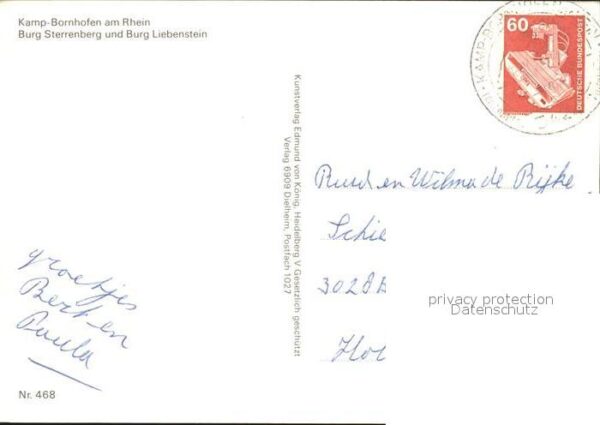 Kamp-Bornhofen am Rhein
Burg Sterrenberg und Burg Liebenstein
60
DEUTSCHE BUNDESPOST
KAMP-BO
Kunstverlag Edmund von König, Heidelberg V Gesetzlich geschützt
Verlag 6909 Dielheim, Postfach 1027
Ruud en Wilma de Rijke
Schie
3028
Hoo
privacy protection
Datenschutz
groetjes
Bert en
Paula
Nr. 468